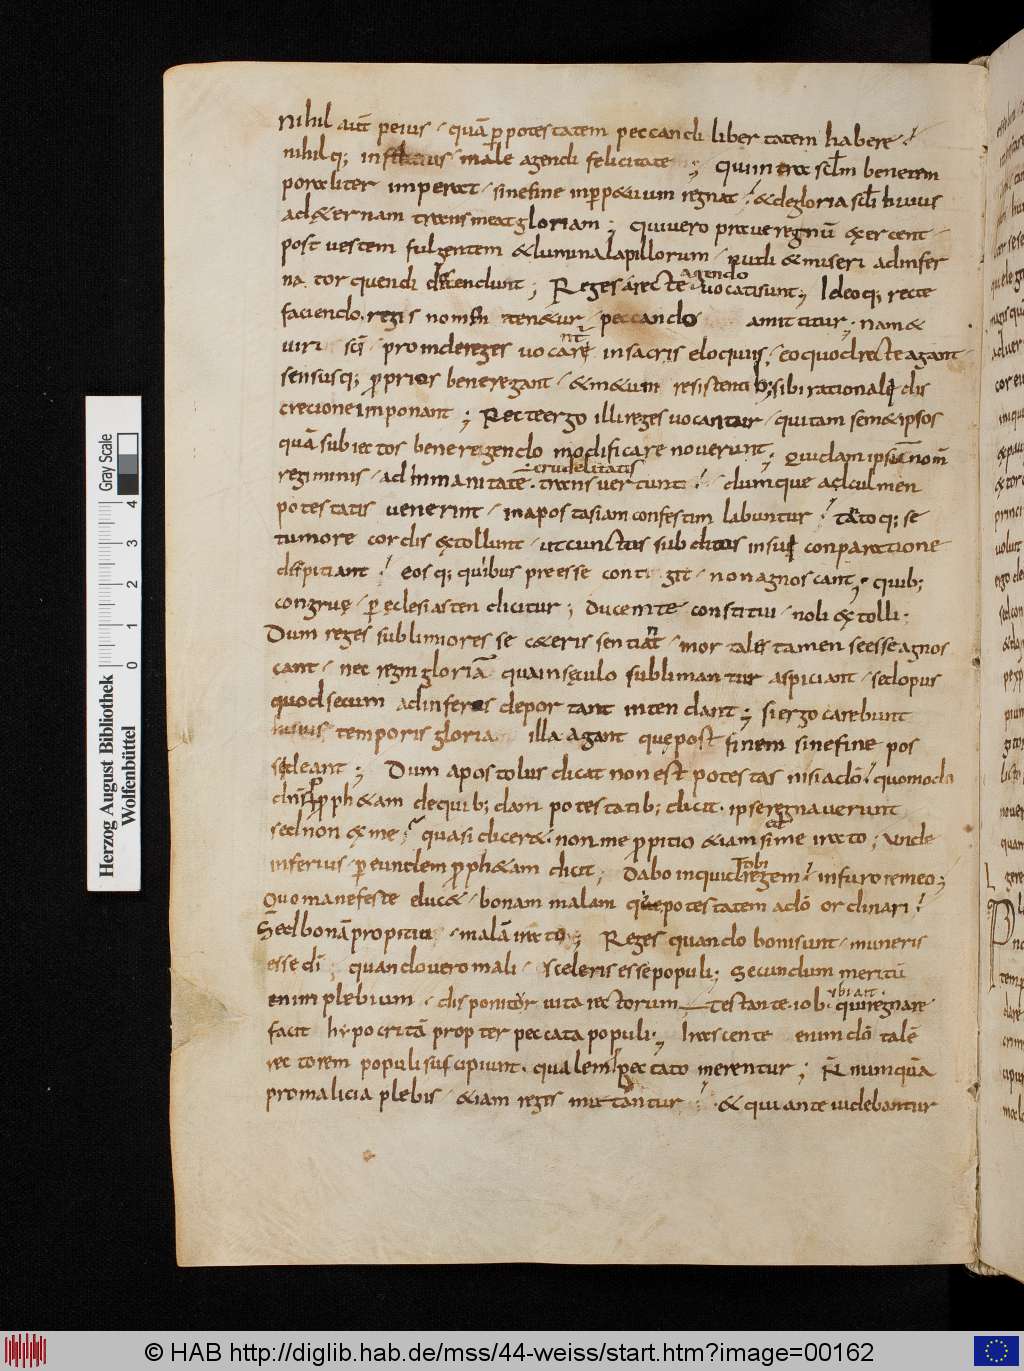 Nihil aut̄ peius · quā ꝑ potestatem peccandi libertatem habere ·
nihilq; infelicius male agendi felicitate ; Qui intra sclm bene tem
poraliter imperat · sine fine in ꝑpetuum regnat · & de gloria scli huius
ad æternam transmeat gloriam ; qui uero praue regnū exercent ·
post uestem fulgentem & lumina lapillorum · nudi & miseri ad infer
na torquendi descendunt ; Reges a recte agendo uocati sunt ; Ideoq; recte
faciendo · regis nomen tenetur · peccando amittitur ; nam &
uiri sci · proinde reges uocari in sacris eloquiis · eo quod recte agant ·
sensusq; ꝓprios bene regant · & motus resistentib; sibi rationali dis
crecione imponant ; Recte ergo illi reges uocantur · qui tam semetipsos
quā subiectos bene regendo modificare nouerunt ; Quidam ipsum nom̄
regiminis · ad inmanitatē · crudelitatis transuertunt · dumque ad culmen
potestatis uenerint · in apostasiam confestim labuntur · tantoq; se
tumore cordis extollunt · ut cunctos subditos in sui conparatione
despiciant · eosq; quibus preesse contigit · non agnoscant · quib;
congruę · ꝑ eclesiasten dicitur ; Ducem te constitui · noli extolli ;
Dum reges sublimiores se cæteris sentiant · mortales tamen se esse agnos
cant · nec regni gloriā qua in sęculo sublimantur aspiciant · sed opus
quod secum ad inferos deportant intendant ; si ergo carebunt
huius temporis gloria illa agant quę post finem sine fine pos
sideant ; Dum apostolus dicat non est potestas nisi a dō · quomodo
dns ꝑ ꝓphetam de quib;dam potestatib; dicit · ipse regnauerunt
sed non ex me · quasi diceret · non me ꝓpitio etiam si me irato ; Unde
inferius · ꝑ eundem ꝓphetam dicit ; Dabo inquid tibi regem · in furore meo ;
Quo manefeste elucet · bonam malam que potestatem a dō ordinari ·
Sed bonā propitio · malā irato ; Reges quando boni sunt · muneris
esse di ; quando uero mali · sceleris esse populi ; Secundum meritū
enim plebium · disponitur uita rectorum · Testante iob · ubi ait · qui regnare
facit hypocritā propter peccata populi ; Irascente enim dō talē
rectorem populi suscipiunt · qualem ꝓ peccato merentur ; N̄ numquā
pro malicia plebis · etiam reges mutantur · & qui ante uidebantur
Herzog August Bibliothek
Wolfenbüttel
0 1 2 3 4
Gray Scale
© HAB http://diglib.hab.de/mss/44-weiss/start.htm?image=00162